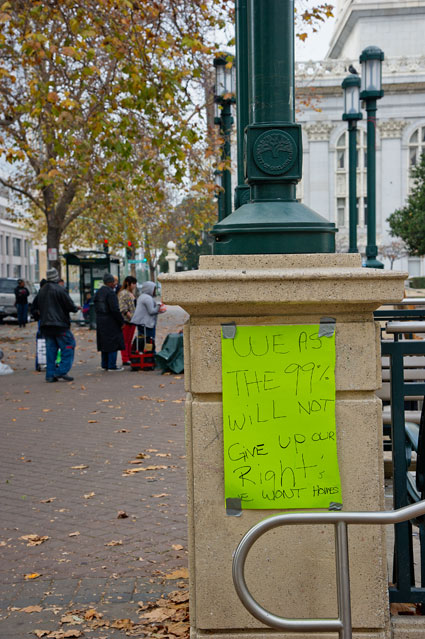 WE AS
THE 99%
WILL NOT
GIVE UP OUR
Right's
WE WONT HOMES